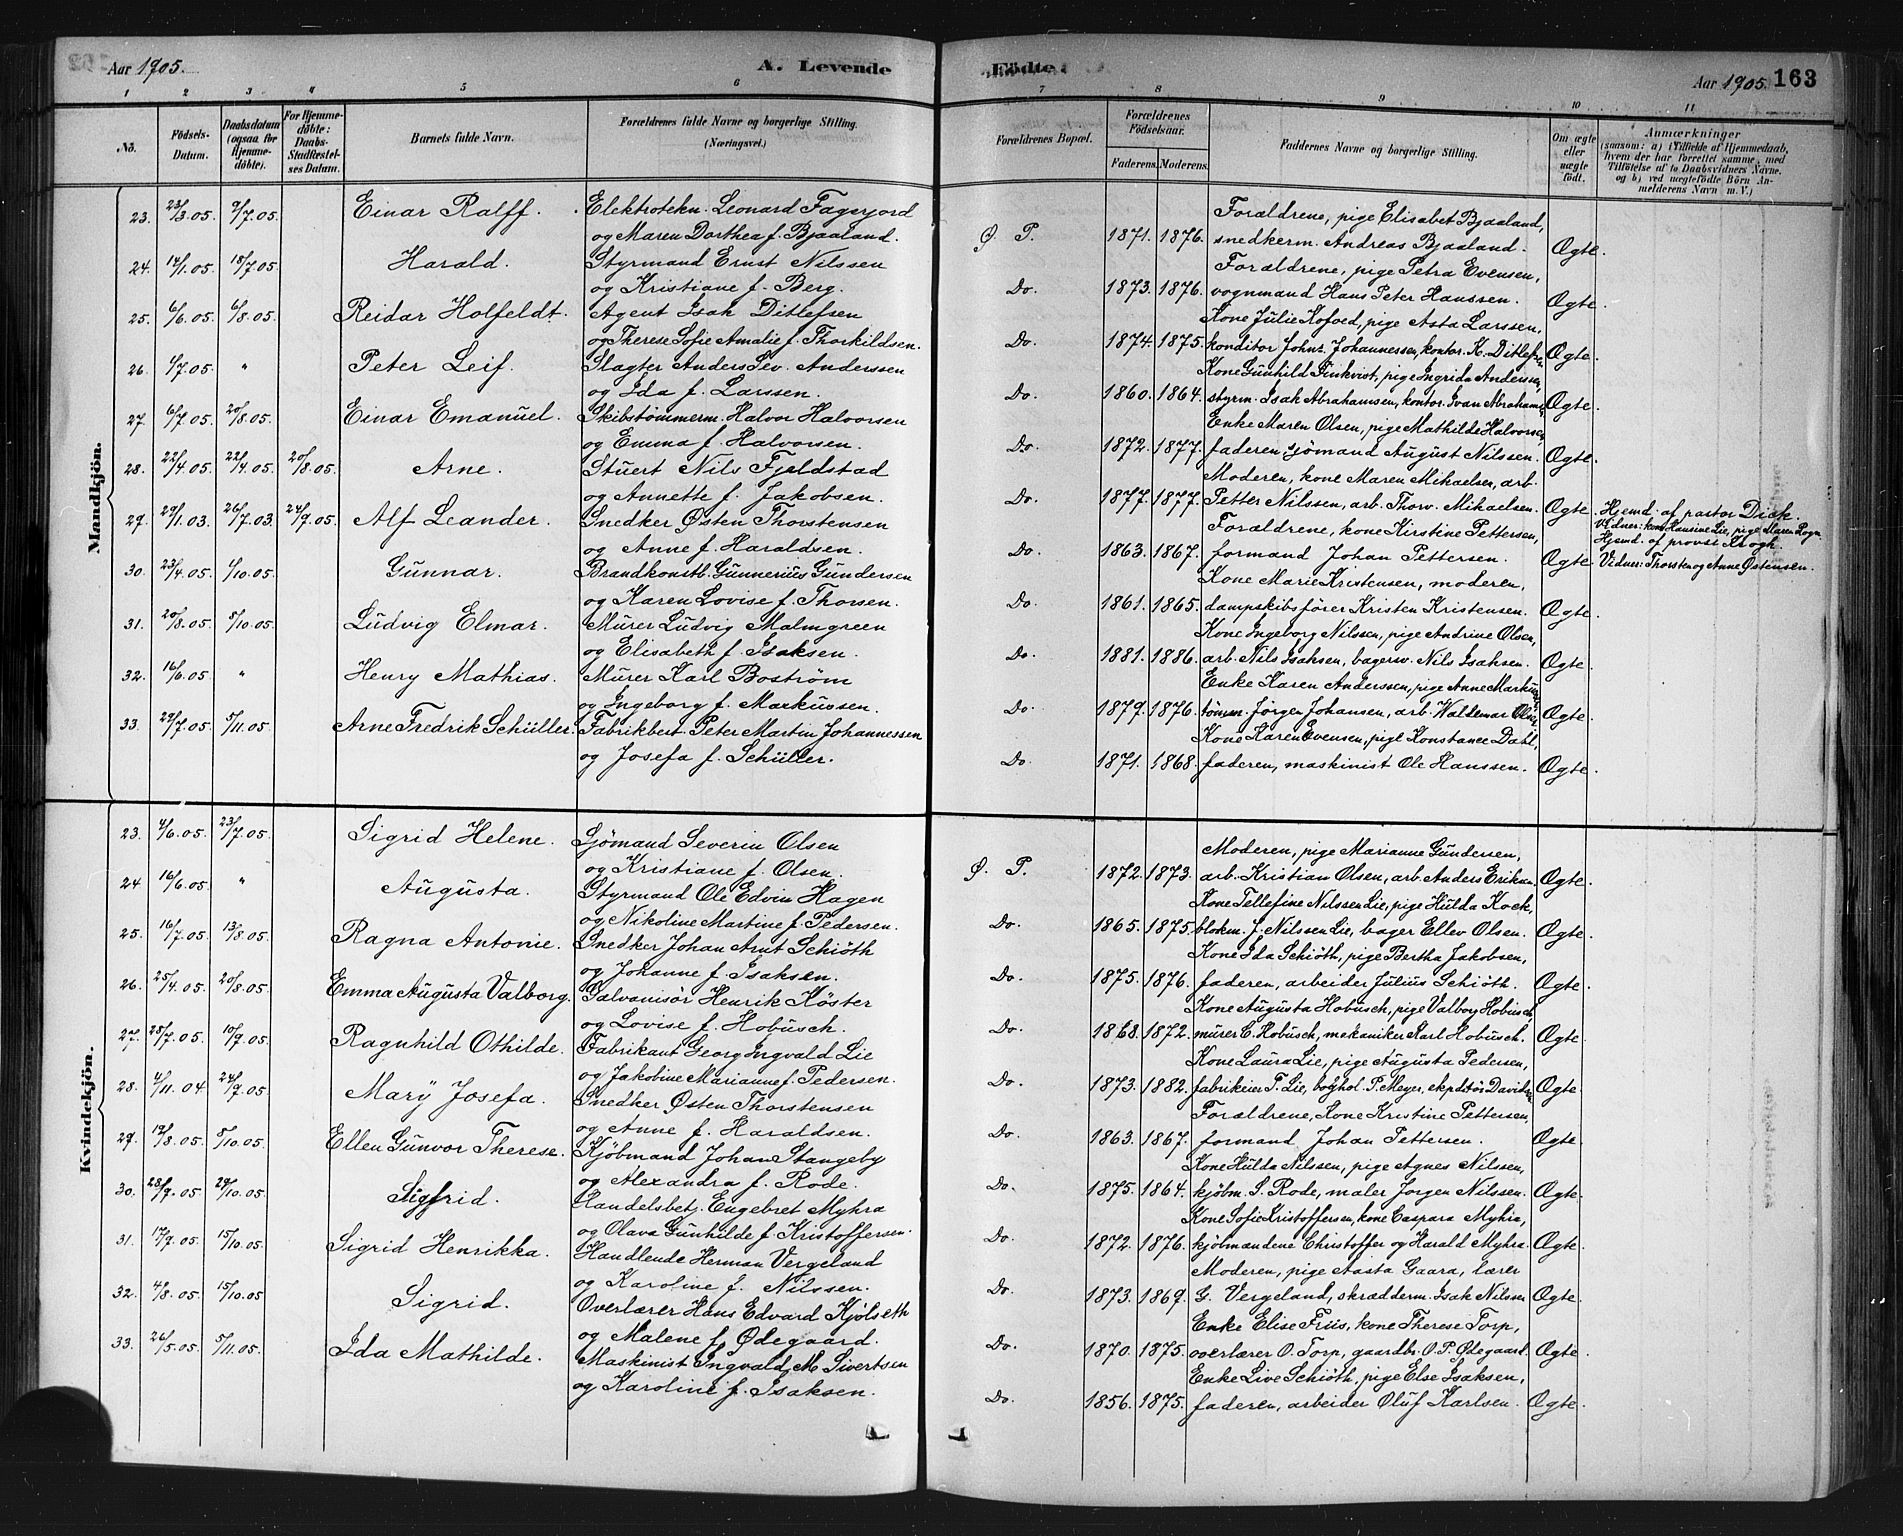 Aar 1905.
A. Levende
1 2 3 4 5 6
No. Födsels-Datum. Daabsdatum (ogsaa for Hjemmedöbte). For Hjemmedöbte: Daabs-Stadfestelses Datum. Barnets fulde Navn. Forældrenes fulde Navne og borgerlige Stilling. (Næringsvei.)
Mandkjön.
23. 23/3.05. 9/7.05. Einar Ralff. Elektrotekn. Leonard Fagerjord
og Maren Dorthea f. Bjaaland.
24. 14/1.05. 18/7.05. Harald. Styrmand Ernst Nilssen
og Kristiane f. Berg.
25. 6/6.05. 6/8.05. Reidar Holfeldt. Agent Isak Ditlefsen
og Therese Sofie Amalie f. Thorkildsen.
26. 1/7.05. " Peter Leif. Slagter Anders Sev. Anderssen
og Ida f. Larssen.
27. 6/7.05. 20/8.05. Einar Emanuel. Skibstømmerm. Halvor Halvorsen
og Emma f. Halvorsen.
28. 22/4.05. 22/4.05. 20/8.05. Arne. Stuert Nils Fjeldstad
og Annette f. Jakobsen.
29. 29/1.03. 26/7.03. 24/9.05. Alf Leander. Snedker Østen Thorstensen
og Anne f. Haraldsen.
30. 23/4.05. 1/10.05. Gunnar. Brandkonstb. Gunnerius Gundersen
og Karen Lovise f. Thorsen.
31. 20/8.05. 5/10.05. Ludvig Elmar. Murer Ludvig Malmgreen
og Elisabeth f. Isaksen.
32. 16/6.05. " Henry Mathias. Murer Karl Boström
og Ingeborg f. Markussen.
33. 29/7.05. 5/11.05. Arne Fredrik Schüller. Fabrikbest. Peter Martin Johannessen
og Josefa f. Schüller.
Kvindekjön.
23. 4/6.05. 23/7.05. Sigrid Helene. Sjömand Severin Olsen
og Kristiane f. Olsen.
24 16/6.05. " Augusta. Styrmand Ole Edvin Hagen
og Nikoline Martine f. Pedersen.
25. 16/7.05. 13/8.05. Ragna Antonie. Snedker Johan Arnt Schiöth
og Johanne f. Isaksen.
26. 25/4.05. 20/8.05. Emma Augusta Valborg. Galvanisör Henrik Köster
og Lovise f. Hobusch.
27. 28/7.05. 10/9.05. Ragnhild Othilde. Fabrikant Georg Ingvald Lie
og Jakobine Marianne f. Pedersen.
28. 4/11.04 24/9.05. Mary Josefa. Snedker Østen Thorstensen
og Anne f. Haraldsen.
29. 19/8.05. 8/10.05. Ellen Gunvor Therese. Kjöbmand Johan Stangeby
og Alexandra f. Rode.
30. 28/9.05. 29/10.05. Sigfrid. Handelsbetj. Engebret Myhra
og Olava Gunhilde f. Kristoffersen.
31. 17/9.05. 15/10.05. Sigrid Henrikka. Handlende Herman Vergeland
og Karoline f. Nilssen.
32. 4/8.05. 15/10.05 Sigrid. Overlærer Hans Edvard Kjölseth
og Malene f. Ødegaard.
33. 26/5.05. 5/11.05. Ida Mathilde. Maskinist Ingvald M. Sivertsen
og Karoline f. Isaksen.
Födte.
Aar 1905. 163
7 8 9 10 11
Forældrenes Bopæl. Forældrenes Födselsaar. Faderens. Moderens. Faddernes Navne og borgerlige Stilling. Om ægte eller uægte födt. Anmærkninger (saasom: a) i Tilfælde af Hjemmedaab, hvem der har forrettet samme, med Tilföielse af to Daabsvidners Navne, og b) ved uægtefödte Börn Anmelderens Navn m. V.)
Forældrene, pige Elisabet Bjaaland,
Ø. P. 1871. 1876. snedkerm. Andreas Bjaaland. Ægte.
Forældrene, pige Petra Evensen,
Do. 1873. 1876. vognmand Hans Peter Hanssen. Ægte.
Kone Julie Kofoed, pige Asta Larssen,
Do. 1874. 1875. konditor Johnz. Johannessen, kontor. K. Ditlefsen Ægte.
Kone Gunhild Finkvist, pige Ingrida Andersen,
Do. 1860. 1864. styrm. Isak Abrahamsen, kontor. Ivan Abrahams. Ægte.
Enke Maren Olsen, pige Mathilde Halvorsen,
Do. 1872. 1877. faderen, sjömand August Nilssen. Ægte.
Moderen, kone Maren Mikaelsen, arb.
Do. 1877. 1877. Petter Nilssen, arb. Thorv. Mikaelsen. Ægte. Hjemd. af pastor Dick.
Vidner: kone Hansine Lie, pige Maren Rogn.
Forældrene, kone Kirstine Pettersen, Hjemd. af provst Krogh.
Do. 1863. 1867. formand Johan Pettersen. Ægte. Vidner: Thorsten og Anne Østensen.
Kone Marie Kristensen, moderen,
Do. 1861. 1865. dampskibsförer Kristen Kristensen. Ægte.
Kone Ingeborg Nilssen, pige Andrine Olsen,
Do. 1881. 1886. arb. Nils Isaksen, bagersv. Nils Isaksen. Ægte.
Enke Karen Anderssen, pige Anne Markussen,
Do. 1879. 1876. tömm. Jörgen Johansen, arb. Waldemar Olsen, Ægte.
Kone Karen Evensen, pige Konstance Dahl,
Do. 1871. 1868. faderen, maskinist Ole Hanssen. Ægte.
Moderen, pige Marianne Gundersen,
Ø. P. 1872. 1873. arb. Kristian Olsen, arb. Anders Eriksen. Ægte.
Kone Tellefine Nilssen Lie, pige Hulda Kock,
Do. 1865. 1875. blokm. J. Nilssen Lie, bager Ellev Olsen. Ægte.
Kone Ida Schiöth, pige Bertha Jakobsen,
Do. 1875. 1876. faderen, arbeider Julius Schiöth. Ægte.
Kone Augusta Hobusch, pige Valborg Hobusch,
Do. 1868. 1872. murer C. Hobusch, mekaniker Karl Hobusch. Ægte.
Kone Laura Lie, pige Augusta Pedersen,
Do. 1873. 1882. fabrikeier T. Lie, boghol. P. Meyer, ekpditör Davids. Ægte.
Forældrene, Kone Kristine Pettersen,
Do. 1863. 1867. formand Johan Pettersen. Ægte.
Kone Hulda Nilssen, pige Agnes Nilssen,
Do. 1875. 1864. kjöbm. S. Rode, maler Jørgen Nilssen. Ægte.
Kone Sofie Kristoffersen, kone Caspara Myhra,
Do. 1872. 1876. kjöbmændene Christoffer og Harald Myhra. Ægte.
Moderen, pige Aasta Gaara, lærer
Do. 1873. 1869. G. Vergeland, skrædderm. Isak Nilssen Ægte.
Enke Elise Friis, kone Therese Torp,
Do. 1870. 1875. overlærer O. Torp, gaardbr. O. P. Ødegaard. Ægte.
Enke Live Schiöth, pige Else Isaksen,
Do. 1856. 1875. faderen, arbeider Oluf Karlsen. Ægte.